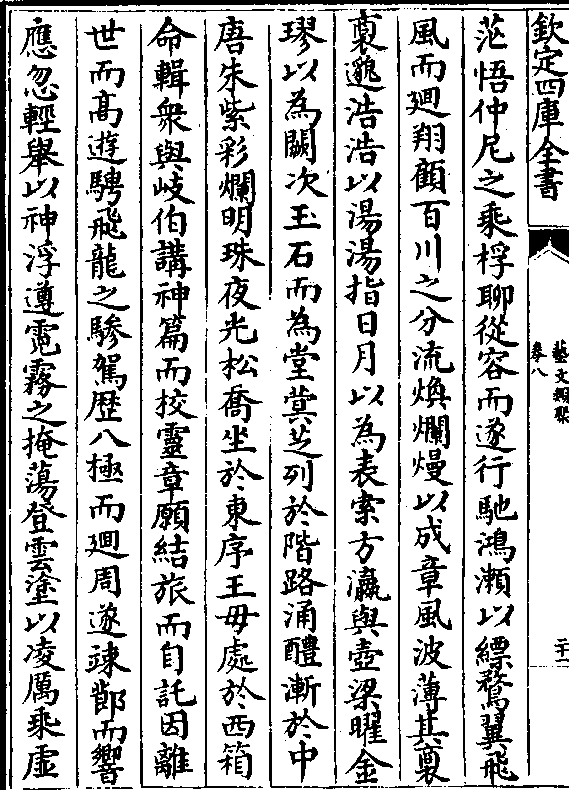 欽定四庫全書
藝文類聚
卷八
二十一
茫悟仲尼之乘桴聊從容而遂行馳鴻瀨以縹鶩翼飛
風而廻翔顧百川之分流煥爛熳以成章風波薄其裹
裹邈浩浩以湯湯指日月以為表索方瀛與壺梁曜金
璆以為闕次玉石而為堂蓂芝列於階路涌醴漸於中
唐朱紫彩爛明珠夜光松喬坐於東序王母處於西箱
命輯衆與岐伯講神篇而挍靈章願結旅而自託因離
世而髙遊騁飛龍之驂駕歴八極而廻周遂竦節而響
應忽輕舉以神浮遵霓霧之掩蕩登雲塗以凌厲乘虛